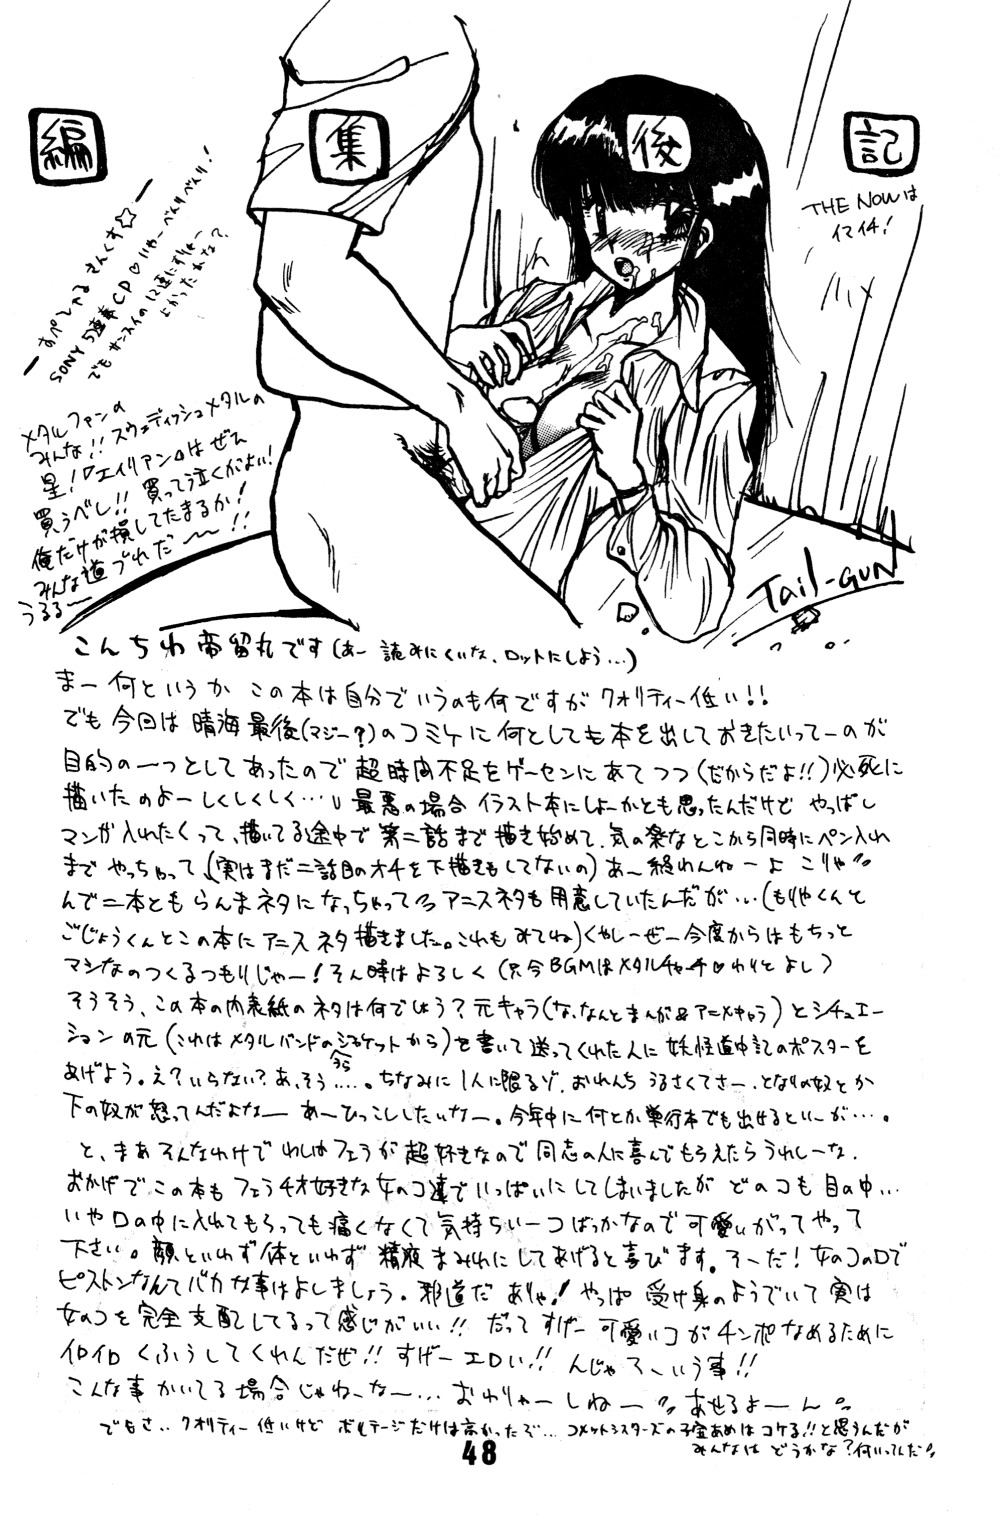 編集後記
THE NOWは
イマイチ!
ー すぺしゃる さんくす☆ ー
SONY 5連奏CD♡いやーべんりべんり!
でもサンスイの12連にすりゃー
よかったかな?
メタルファンの
みんな!!スウェディッシュメタルの
星!『エイリアン』はぜひ
買うべし!!買って泣くがよい!
俺だけが損してたまるか!
みんな道づれだ〜〜!!
うるる〜
Tail-GUN
こんちわ帝留丸です(あー 読みにくいな、ロットにしよう…)
まー何というか この本は自分でいうのも何ですが クオリティー低い!!
でも今回は 晴海最後(マジー?)のコミケに何としても本を出しておきたいってーのが
目的の一つとしてあったので 超時間不足をゲーセンにあてつつ(だからだよ!!)必死に
描いたのよーしくしくしく… 最悪の場合 イラスト本にしよーかとも思ったんだけど やっぱし
マンガ入れたくって、描いてる途中で 第二話まで描き始めて、気の楽なとこから同時にペン入れ
までやっちゃって、(実はまだ二話目のオチを下描きもしてないの)あー終わんねーよ こりゃ
んで二本とも らんまネタになっちゃって アニスネタも用意していたんだが…(もりやくんと
ごじょうくんとこの本にアニスネタ描きました。これもみてね)くやしーぜー今度からはもちっと
マシなのつくるつもりじゃー!そん時はよろしく(只今BGMはメタルチャーチ♡わりとよし)
そうそう、この本の内表紙のネタは何でしょう?元キャラ(な、なんとまんが&アニメキャラ)とシチュエー
ションの元(これはメタルバンドのジャケットうらから)を書いて送ってくれた人に 妖怪道中記のポスターを
あげよう。え?いらない?あ、そう…。ちなみに1人に限るゾ、おれんち うるさくてさー、とないの奴とか
下の奴が怒ってんだよなー あーひっこししたいなー。今年中に何とか単行本でも出せるといーが…。
と、まあそんなわけで わしはフェラが超好きなので 同志の人に喜んでもらえたらうれしーな、
おかげで この本も フェラチオ好きな女のコ達で いっぱいにしてしまいましたが どのコも目の中…
いや口の中に入れてもらっても痛くなくて気持ちいーコばっかなので可愛いがってやって
下さい。顔といわず体といわず 精液まみれにしてあげると喜びます。そーだ!女のコの口で
ピストンなんてバカな事はよしましょう。邪道だ ありゃ!やっぱ 受け身のようでいて実は
女のコを完全支配してるって感じがいい!!だってすげー可愛いコがチンポなめるために
イロイロ くふうしてくれんだぜ!!すげーエロい!!んじゃそーいう事!!
こんな事かいてる場合じゃねーなー… おわりゃーしねー あせるよーん
でもさ…クオリティー低いけど ボルテージだけは高かったで… コメットシスターズの子宝あめはコケる!!と思うんだが
みんなは どうかな?何いってんだ
48